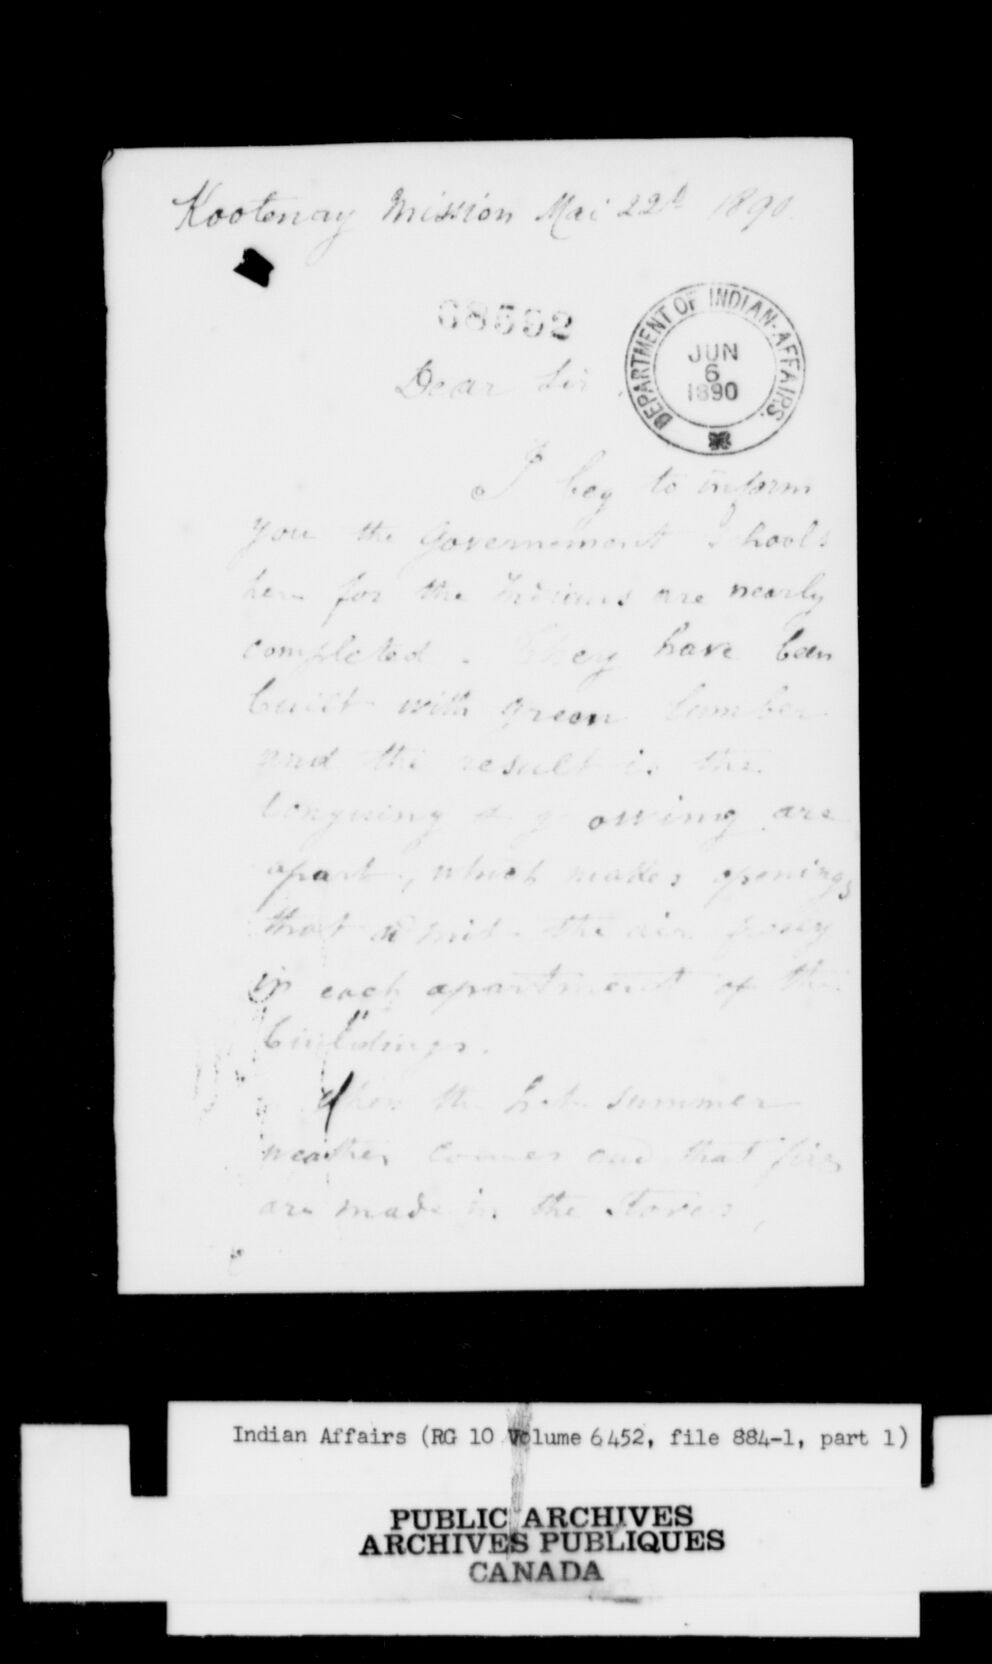 Kootenay Mission Mai 22d 1890.
68592
DEPARTMENT OF INDIAN-AFFAIRS.
JUN
6
1890
Dear Sir
I beg to inform
you the Governement Schools
here for the Indians are nearly
completed. They have been
built with green lumber
and the result is the
tonguing & growing are
apart, which makes openings
that admit the air freely
in each apartment of the
buildings.
When the hot summer
weather comes and that fires
are made in the stoves,
Indian Affairs (RG 10 Volume 6452, file 884-1, part 1)
PUBLIC ARCHIVES
ARCHIVES PUBLIQUES
CANADA